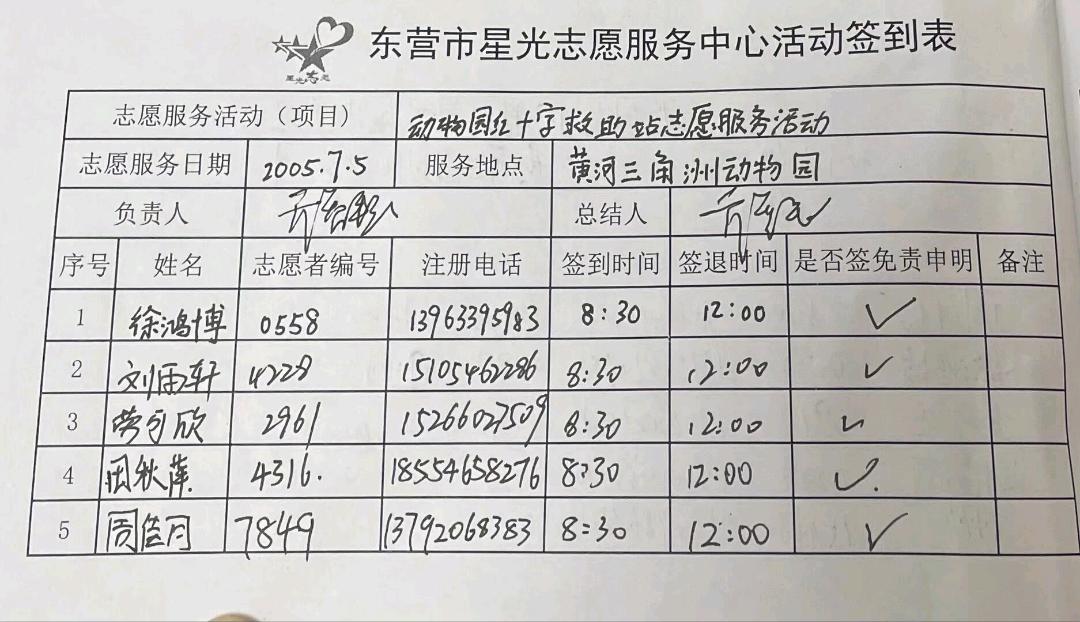 东营市星光志愿服务中心活动签到表
星光志愿
志愿服务活动（项目） 动物园红十字救助站志愿服务活动
志愿服务日期 2005.7.5 服务地点 黄河三角洲动物园
负责人 总结人
序号 姓名 志愿者编号 注册电话 签到时间 签退时间 是否签免责申明 备注
1 徐鸿博 0558 13963395983 8:30 12:00 ✓
2 刘雨轩 4228 15105462286 8:30 12:00 ✓
3 欣 2961 15266027509 8:30 12:00 ✓
4 周秋萍 4316. 18554658276 8:30 12:00 ✓.
5 周佳月 7849 13792068383 8:30 12:00 ✓